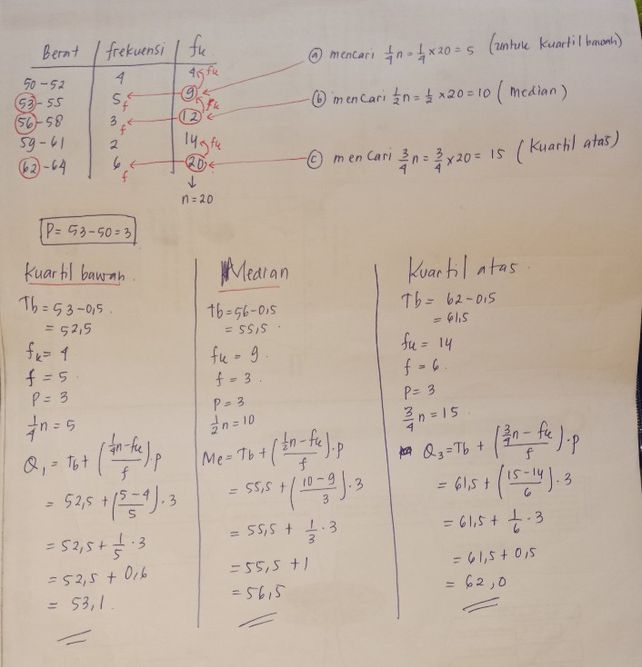 Berat | frekuensi | fk
50-52 4 4 fk
53-55 5 f 9 fk
56-58 3 f 12
59-61 2 14 fk
62-64 6 f 20
n=20
ⓐ mencari 1/4 n = 1/4 × 20 = 5 (untuk kuartil bawah)
ⓑ mencari 1/2 n = 1/2 × 20 = 10 (Median)
ⓒ mencari 3/4 n = 3/4 × 20 = 15 (kuartil atas)
P = 53-50 = 3
Kuartil bawah
Tb = 53-0,5
= 52,5
fk = 4
f = 5
P = 3
1/4 n = 5
Q₁ = Tb + ((1/4 n - fk)/f) . P
= 52,5 + ((5-4)/5) . 3
= 52,5 + 1/5 . 3
= 52,5 + 0,6
= 53,1.
Median
tb = 56-0,5
= 55,5
fk = 9
f = 3.
P = 3
1/2 n = 10
Me = Tb + ((1/2 n - fk)/f) . P
= 55,5 + ((10-9)/3) . 3
= 55,5 + 1/3 . 3
= 55,5 + 1
= 56,5
Kuartil atas
Tb = 62-0,5
= 61,5
fk = 14
f = 6.
P = 3
3/4 n = 15.
Q₃ = Tb + ((3/4 n - fk)/f) . P
= 61,5 + ((15-14)/6) . 3
= 61,5 + 1/6 . 3
= 61,5 + 0,5
= 62,0